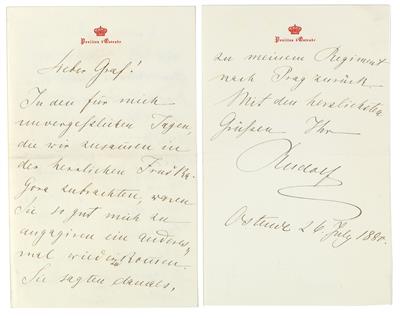 Pavillon d'Ostende
Lieber Graf!
In den für mich
unvergeßlichen Tagen,
die wir zusamen in
der herrlichen Fruska-
Gora zubrachten, waren
Sie so gut mich zu
angagiren ein anderes-
mal wiederzukomen.
Sie sagten damals,
Pavillon d'Ostende
zu meinem Regiment
nach Prag zurück.
Mit den herzlichsten
Grüßen Ihr
Rudolf
Ostende 26 July 1880.